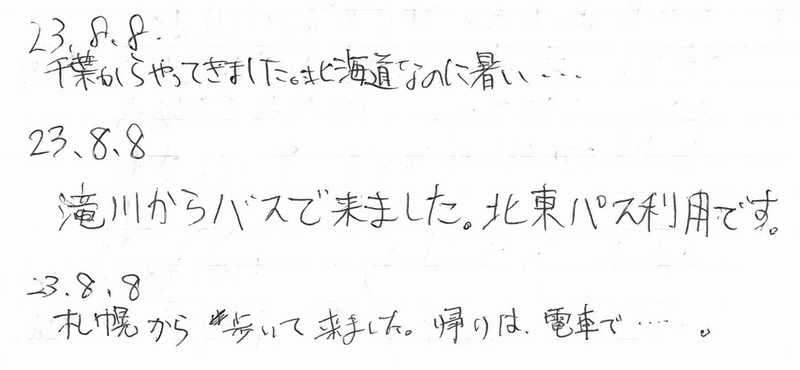 23.8.8.
千葉からやってきました。北海道なのに暑い・・・
23、8、8
滝川からバスで来ました。北東パス利用です。
23.8.8
札幌から歩いて来ました。帰りは、電車で・・・・。